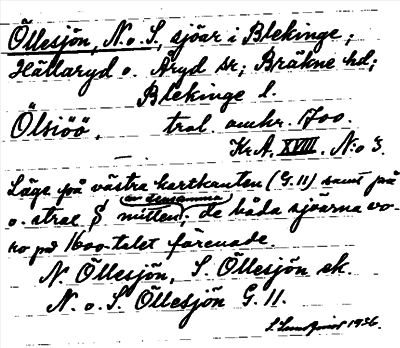 Öllesjön, N. o. S., sjöar i Blekinge;
Hällaryd o. Åryd sr; Bräkne hd;
Blekinge l.
Ölsiöö, tral. omkr. 1700.
Kr. A. XVIII. N:o 3.
Läge på västra kartkanten (G. 11) samt på
o. strae
mitten; de båda sjöarna vo-
ro på 1600-talet förenade.
N. Öllesjön, S. Öllesjön ek.
N. o. S. Öllesjön G. 11.
1936.